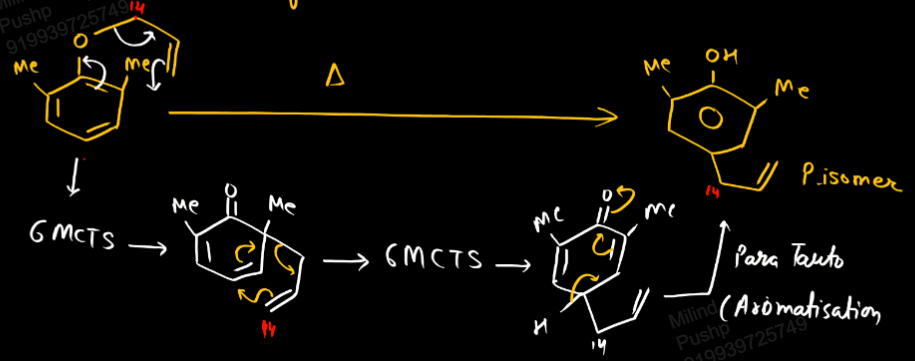 14
Pushp
919939725749
O
Me
Me
Δ
OH
Me
Me
14
P.isomer
6MCTS
O
Me
Me
14
6MCTS
O
Me
Me
H
14
Para Tauto
(Aromatisation
Milind
Pushp
919939725749